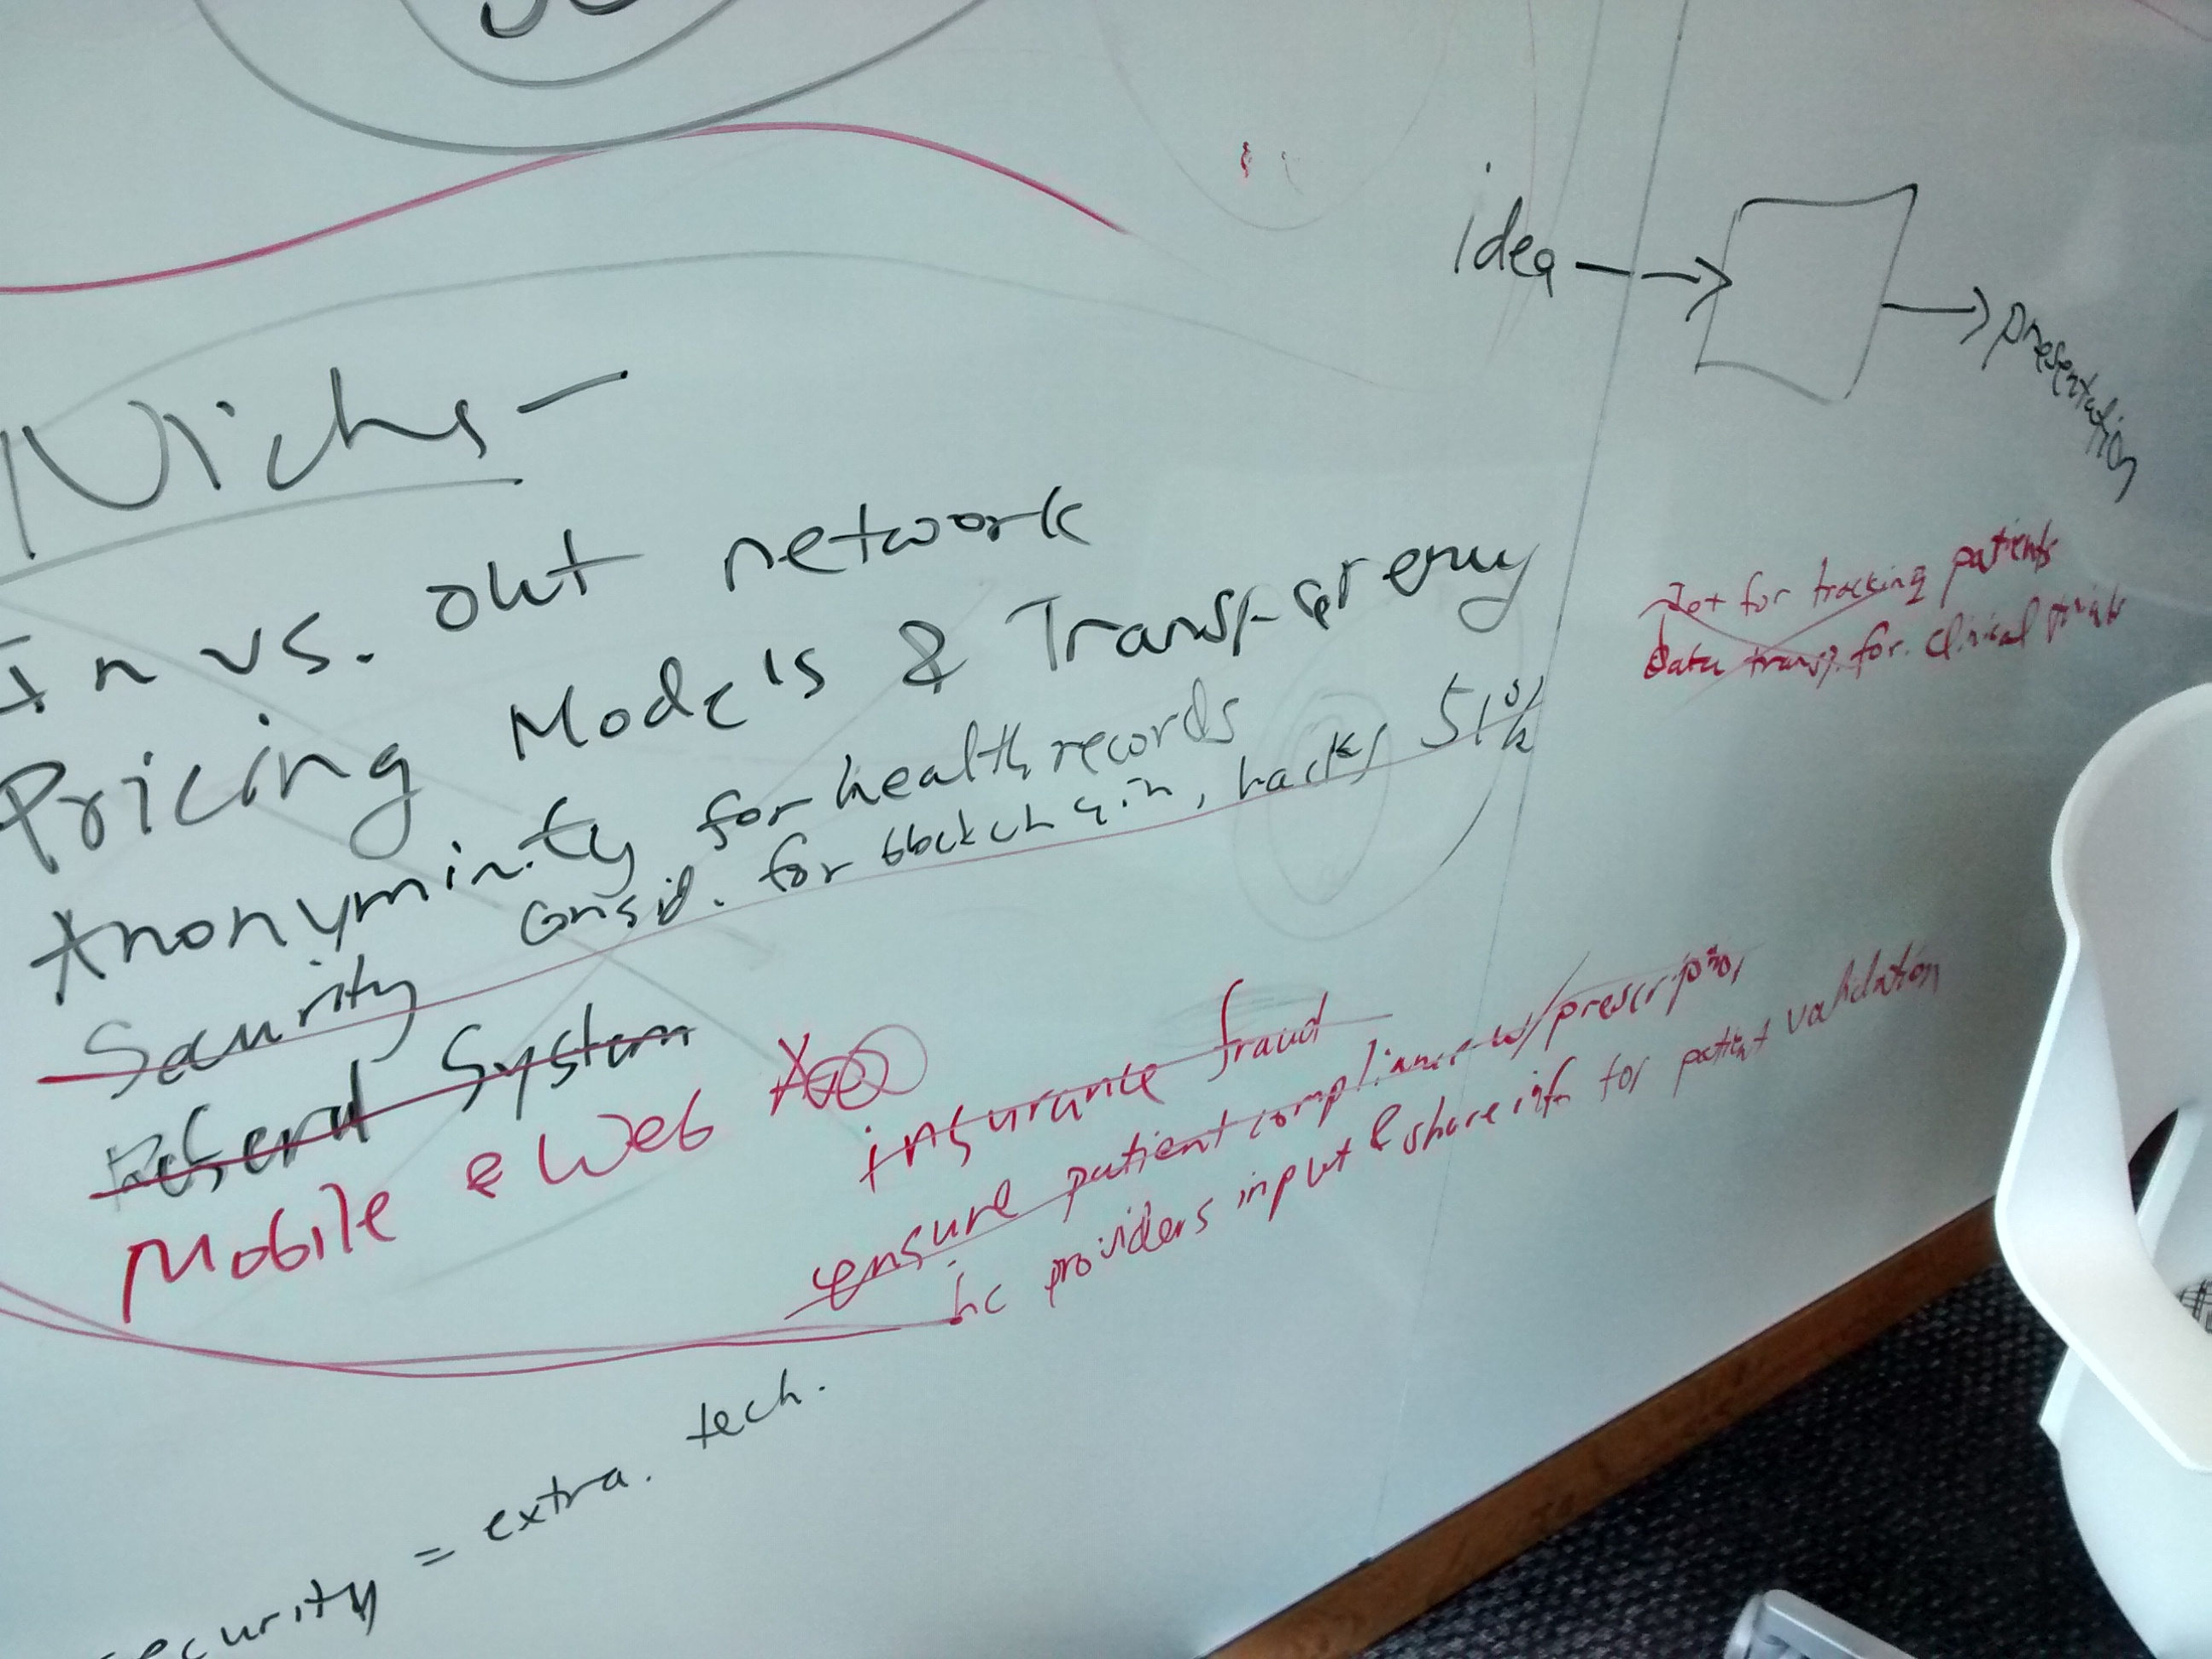 idea
presentation
Niche
In vs. out network
Pricing Models & Transparency
Anonyminity for health records
Security consid. for blockchain, hacks, 51%
Referral System
Mobile & Web
IoT for tracking patients
Data transp. for clinical trials
insurance fraud
ensure patient compliance w/ prescription
hc providers input & share info for patient validation
security = extra. tech.